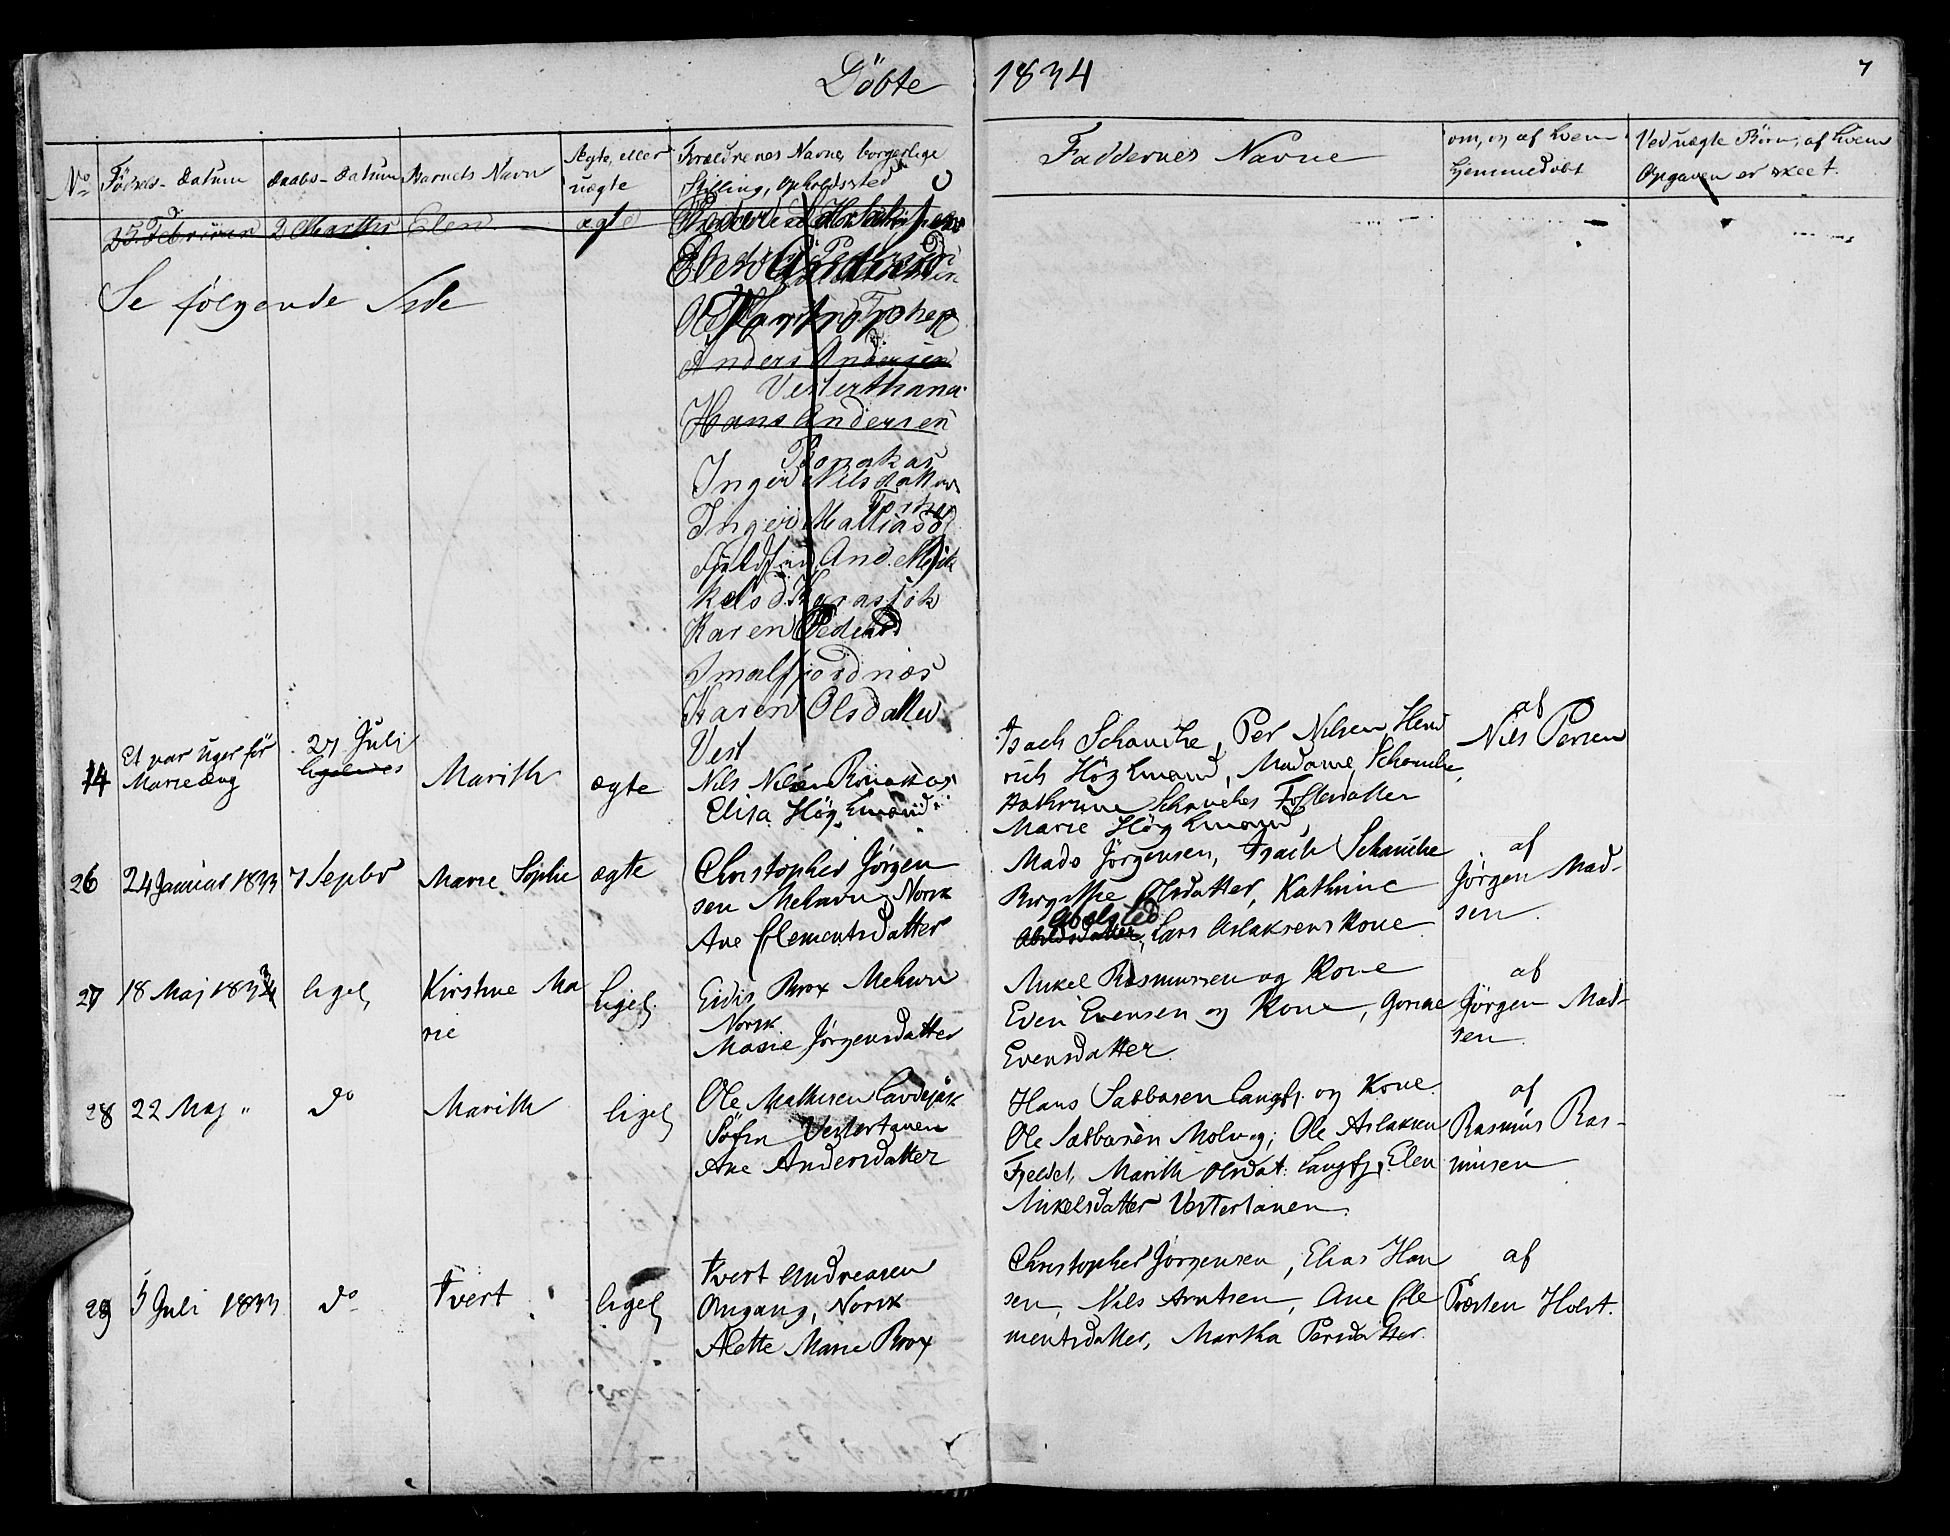 Döbte 1834
7
No
Födsels-Datum
Daabs-Datum
Barnets Navn
Ægte, eller
uægte
Forældrenes Navne, borgerlige
Stilling, Opholdssted
Faddernes Navne
om, og af hvem
hjemmedöbt
Ved uægte Börn, af hvem
Opgaven er skeet.
25 Februar 2 Marths Elen ægte
Se følgende Side
Anders Andersen
Vesterthana
Hans Andersen
Bonakas
Inger Nilsdatter
Inger Mattiasd
And. Mik
kelsd. Karasjok
Karen Pedersd
Smalfjordnæs
Karen Olsdatter
Vest
14
Et par Uger för
Marieæng
27 Juli
ligeledes
Marith
ægte
Nils Nilsen Bonakas
Elisa Höghmand
Isach Schanche, Per Nilsen, Hend
rich Höghmand, Madame Schanche,
Kathrine Schanches Fosterdatter
Marie Höghmand
af
Nils Persen
26
24 Januar 1833
7 Septbr
Marie Sophie
ægte
Christopher Jörgen
sen Mehavn, Norsk
Ane Clementsdatter
Mads Jörgensen, Isach Schanche
Birgithe Olsdatter, Kathrine
Abelsted
Abelsdatter, Lars Aslaksens Kone
af
Jørgen Mad-
sen
27
18 Maj 1833
ligel
Kirstine Ma
rie
ligel
Eidis Brox Mehavn
Norsk
Marie Jörgensdatter
Mikel Rasmussen og Kone
Even Evensen og Kone, Gorine
Evensdatter
af
Jørgen Mad-
sen
28
22 Maj "
do
Marith
ligel
Ole Mathisen
Söfin Vestertanen
Ane Andersdatter
Hans Sabbasen Langfj. og Kone
Ole Sabbasen Molvig, Ole Aslaksen
Fjeldf, Marith Olsdat. Langfj, Elen
Mikelsdatter Vestertanen
af
Rasmus Ras-
musen
29
5 Juli 1833
do
Ivert
ligel
Ivert Andreasen
Omgang, Norsk
Alette Marie Brox
Christopher Jörgensen, Elias Han
sen, Nils Arntsen, Ane Cle
mentsdatter, Martha Persdatter
af
Præsten Holst.